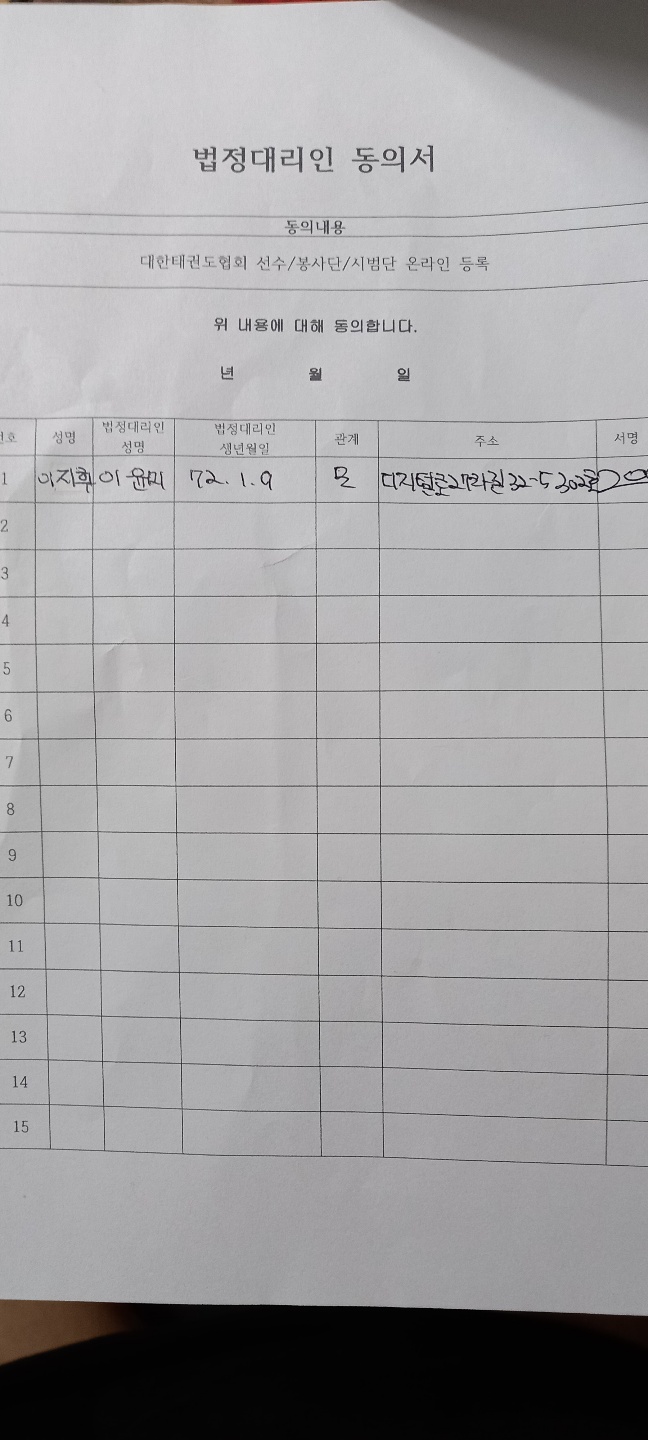 법정대리인 동의서
동의내용
대한태권도협회 선수/봉사단/시범단 온라인 등록
위 내용에 대해 동의합니다.
년 월 일
번호 성명 법정대리인 성명 법정대리인 생년월일 관계 주소 서명
1 이지휘 이윤미 72.1.9 모 디지털로27라길 32-5 302호
2
3
4
5
6
7
8
9
10
11
12
13
14
15